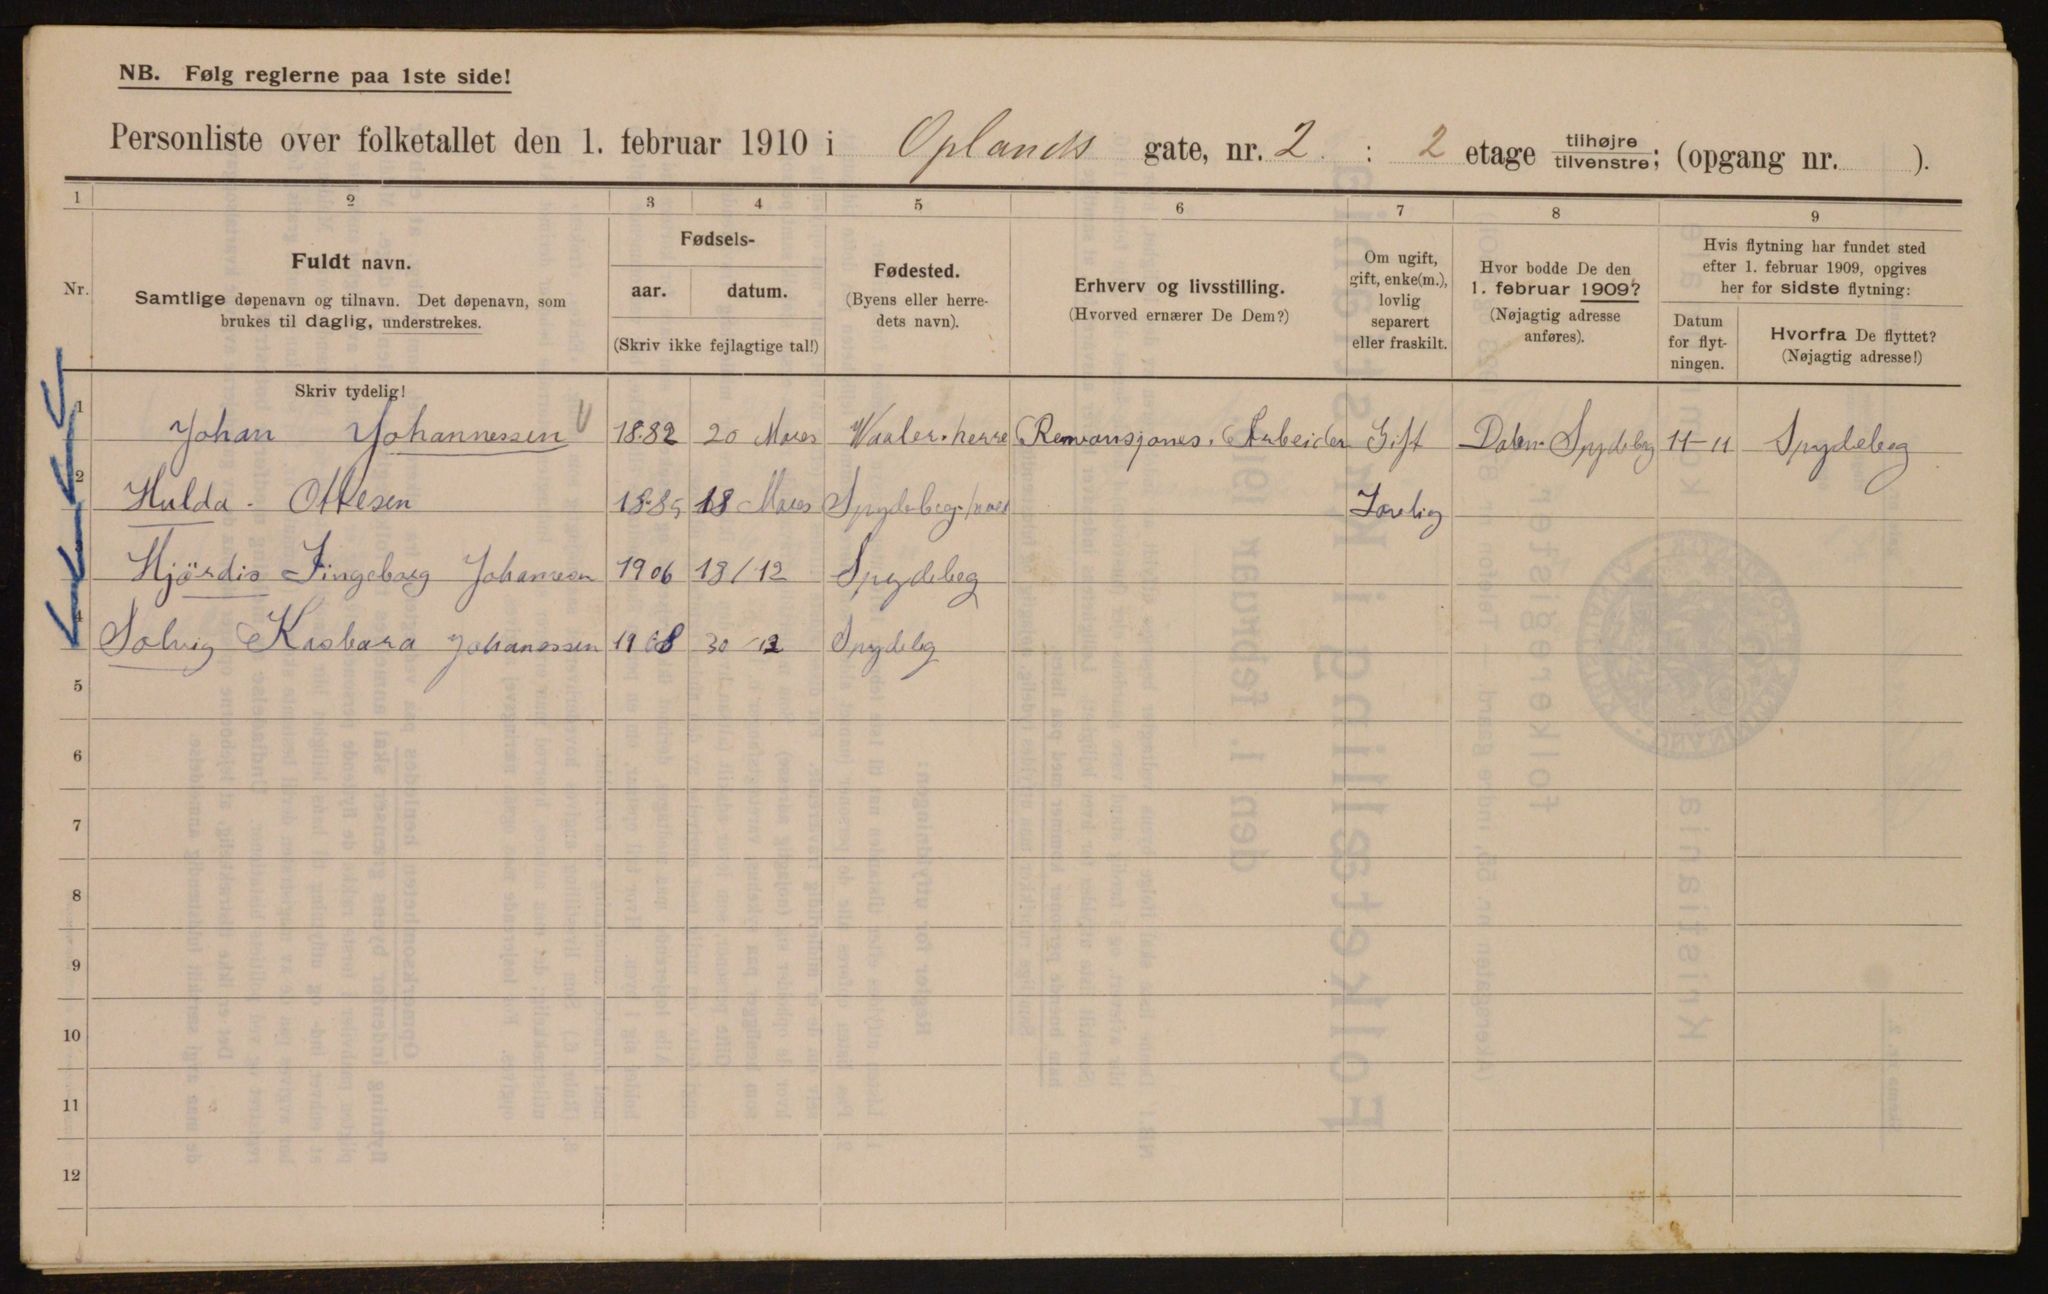 NB. Følg reglerne paa 1ste side!
Personliste over folketallet den 1. februar 1910 i Oplands gate, nr. 2 : 2 etage tilhøjre tilvenstre; (opgang nr. ).
1 2 3 4 5 6 7 8 9
Nr.
Fuldt navn.
Samtlige døpenavn og tilnavn. Det døpenavn, som
brukes til daglig, understrekes.
Skriv tydelig!
Fødsels-
aar. datum.
(Skriv ikke fejlagtige tal!)
Fødested.
(Byens eller herre-
dets navn).
Erhverv og livsstilling.
(Hvorved ernærer De Dem?)
Om ugift,
gift, enke(m.),
lovlig
separert
eller fraskilt.
Hvor bodde De den
1. februar 1909?
(Nøjagtig adresse
anføres).
Hvis flytning har fundet sted
efter 1. februar 1909, opgives
her for sidste flytning:
Datum
for flyt-
ningen.
Hvorfra De flyttet?
(Nøjagtig adresse!)
1 Johan Johannessen 1882 20 Mars Waaler-herre Renvonsjones. Arbeider Gift Spydeberg 11-11 Spydeberg
2 Hulda Ottesen 1885 18 Mars Spydeberg
3 Hjördis Jingeborg Johansen 1906 18/12 Spydeberg
4 Solvig Kasbara Johanssen 1908 30 12 Spydeberg
5
6
7
8
9
10
11
12